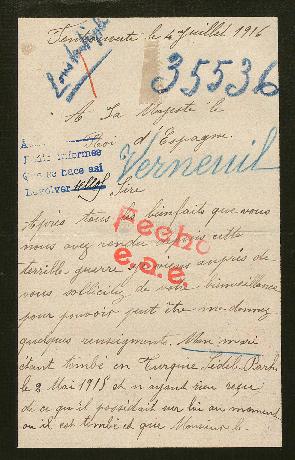 le 4 Juillet 1916
Constantinople
35536
A Sa Majesté le
Roi d'Espagne
Verneuil
Pedir informes
Que se hace asi
Devolver
Sire
Après tous les bienfaits que vous
nous avez rendu depuis cette
terrible guerre je viens auprès de
vous solliciter de votre bienveillance
pour pouvoir peut être me donnez
quelques renseignements. Mon mari
étant tombé en Turquie Sedul-Barh
le 2 Mai 1915 et n'ayant rien reçue
de ce qu'il possédait sur lui au moment
ou il est tombé et que Monsieur le
Fecho
e.a.e.